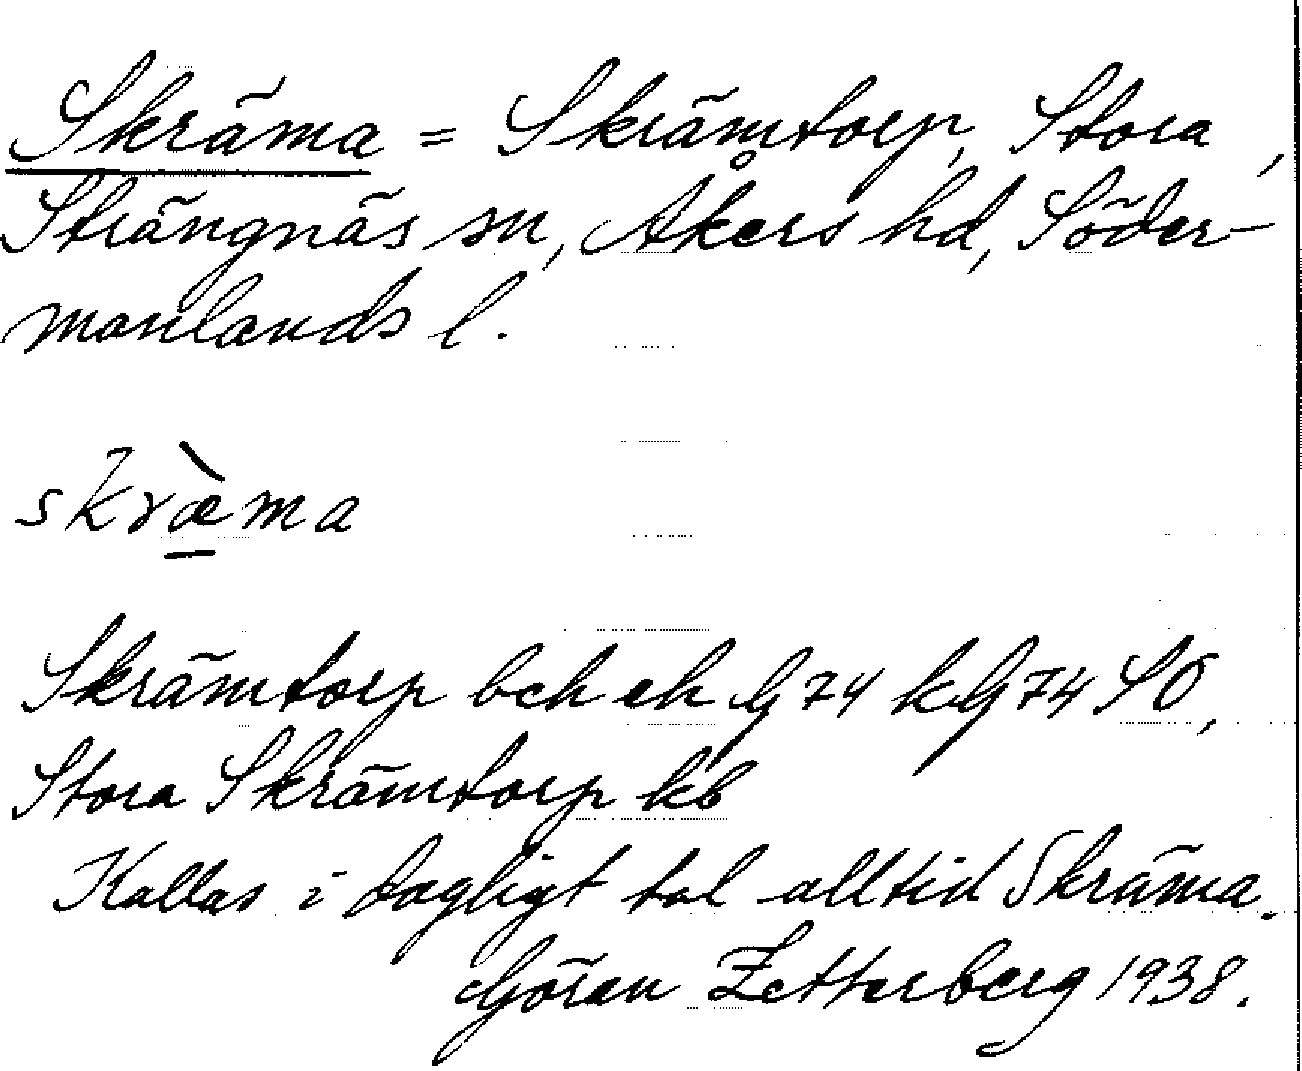 Skräma = Skrämtorp, Stora,
Strängnäs sn, Åkers hd, Söder-
manlands l.
skræ̀ma
Skrämtorp bch ek G 74 kG 74 SO,
Stora Skrämtorp kb
Kallas i dagligt tal alltid Skräma.
Göran Zetterberg 1938.